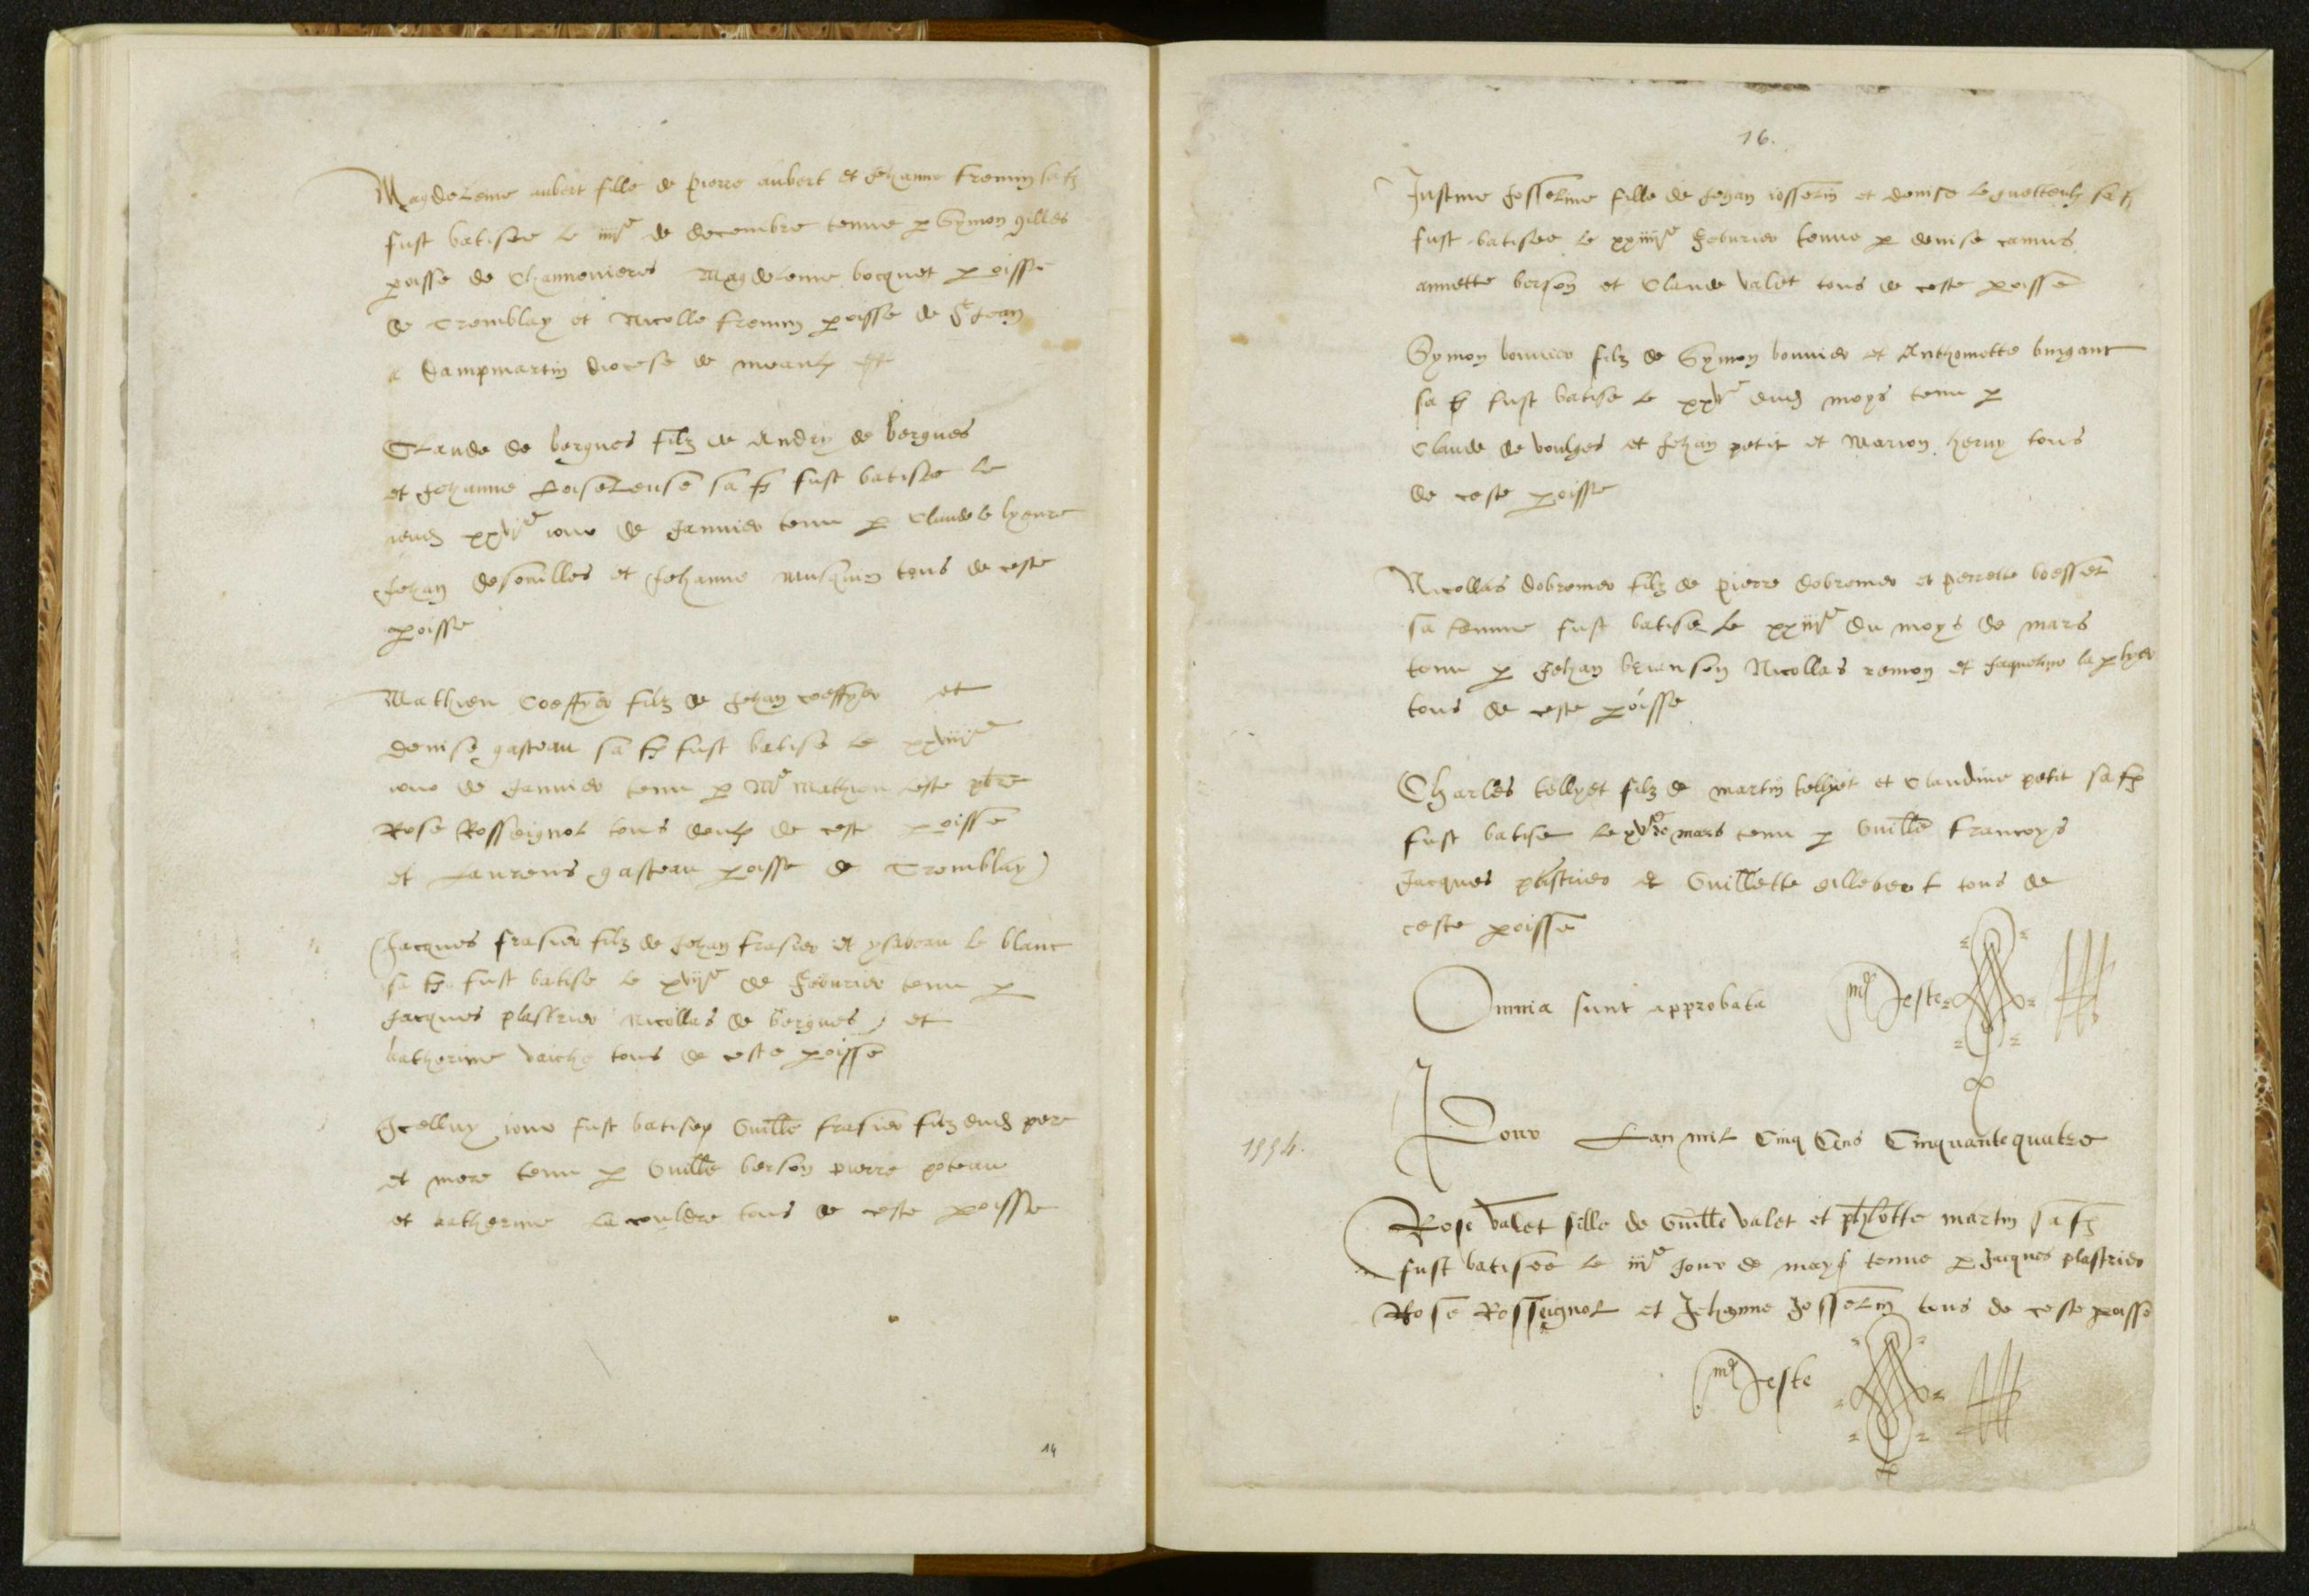 Magdeleine aubert fille de pierre aubert et Jehanne fremin sa f
fust batisee le iiiie de decembre tenue p Symon gilles
poisse de Chennevieres Magdeleine bocquet poisse
de Tremblay et Nicolle fremin poisse de St Jean
a dampmartin diocese de meaulx
Claude de bergues filz de Andry de bergues
et Jehanne sa f fust batisee le
xxvie jour de Janvier tenu p Claude le lyeure
Jehan desouilles et Jehanne tous de ceste
poisse
Mathieu Coeffyer filz de Jehan coeffyer et
denise gasteau sa f fust batise le xxviiie
jour de Janvier tenu p Me Mathieu Jeste pbre
Rose Rosseignol tous deulx de ceste poisse
et Laurens gasteau poisse de Tremblay
Jacques frasier filz de Jehan frasier et ysabeau le blanc
sa f fust batise le xviie de febvrier tenu p
Jacques plastrier Nicollas de bergues et
katherine vaiche tous de ceste poisse
Icelluy jour fust batisey Guille frasier filz dud pere
et mere tenu p Guille berson pierre poteau
et katherine la couldre tous de ceste poisse
14
16.
Justine Josseline fille de Jehan josselin et denise sa f
fust batisee le xxiiiie febvrier tenue p denise camus
annette berson et Claude valet tous de ceste poisse
Symon bouvier filz de Symon bouvier et Anthoinette
sa f fust batise le xxve dud moys tenu p
Claude de voulges et Jehan petit et Marion heruy tous
de ceste poisse
Nicollas dobremer filz de pierre dobremer et perrette boesset
sa femme fust batise le xxiiie du moys de mars
tenu p Jehan Nicollas remon et Jaqueline
tous de ceste poisse
Charles tellyet filz de martin tellyet et Claudine petit sa f
fust batise le xve de mars tenu p Guille francoys
Jacques plastrier et Guillette gillebert tous de
ceste poisse
Omnia sunt approbata M Jeste
Pour Lan mil Cinq Cens Cinquante quatre
1554.
Rose valet fille de Guille valet et phlotte martin sa f
fust batisee le iiie Jour de may tenue p Jacques plastrier
Rose Rosseignol et Jehanne Josselin tous de ceste poisse
M Jeste